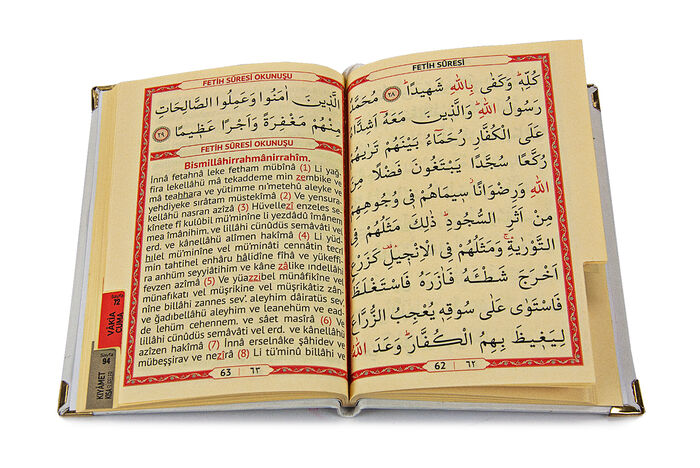 FETİH SÛRESİ
كُلِّهٖ وَكَفٰى بِاللّٰهِ شَهٖيدًا ﴿٢٨﴾ مُحَمَّدٌ
رَسُولُ اللّٰهِ وَالَّذٖينَ مَعَهُٓ اَشِدَّٓاءُ
عَلَى الْكُفَّارِ رُحَمَٓاءُ بَيْنَهُمْ تَرٰيهُمْ
رُكَّعًا سُجَّدًا يَبْتَغُونَ فَضْلًا مِنَ
اللّٰهِ وَرِضْوَانًا سٖيمَاهُمْ فٖي وُجُوهِهِمْ
مِنْ اَثَرِ السُّجُودِ ذٰلِكَ مَثَلُهُمْ فِي
التَّوْرٰيةِ وَمَثَلُهُمْ فِي الْاِنْجٖيلِ كَزَرْعٍ
اَخْرَجَ شَطْـَٔهُ فَاٰزَرَهُ فَاسْتَغْلَظَ
فَاسْتَوٰى عَلٰى سُوقِهٖ يُعْجِبُ الزُّرَّاعَ
لِيَغٖيظَ بِهِمُ الْكُفَّارَ وَعَدَ اللّٰهُ
62 ٦٢
FETİH SÛRESİ OKUNUŞU
الَّذٖينَ اٰمَنُوا وَعَمِلُوا الصَّالِحَاتِ
مِنْهُمْ مَغْفِرَةً وَاَجْرًا عَظٖيمًا ﴿٢٩﴾
FETİH SÛRESİ OKUNUŞU
Bismillâhirrahmânirrahîm.
İnnâ fetahnâ leke fetham mübînâ (1) Li yağ-
fira lekellâhü mâ tekaddeme min zembike ve
mâ teahhara ve yütimme ni'metehû aleyke ve
yehdiyeke sırâtam müstekîmâ (2) Ve yensura-
kellâhü nasran azîzâ (3) Hüvellezî enzeles se-
kînete fî kulûbil mü'minîne li yezdâdû îmânem
mea îmânihim. ve lillâhi cünûdüs semâvâti vel
erd. ve kânellâhü alîmen hakîmâ (4) Li yüd-
hilel mü'minîne vel mü'minâti cennâtin tecrî
min tahtihel enhâru hâlidîne fîhâ ve yükeffi-
ra anhüm seyyiâtihim ve kâne zâlike indellâhi
fevzen azîmâ (5) Ve yüazzibel münâfikîne vel
münâfikâti vel müşrikîne vel müşrikâtiz zân-
nîne billâhi zannes sev'. aleyhim dâiratüs sev'
ve ğadıbellâhü aleyhim ve leanehüm ve ead-
de lehüm cehennem. ve sâet masîrâ (6) Ve
lillâhi cünûdüs semâvâti vel erd. ve kânellâhü
azîzen hakîmâ (7) İnnâ erselnâke şâhidev ve
mübeşşirav ve nezîrâ (8) Li tü'minû billâhi ve
63 ٦٣
Sayfa
72
VÂKIA
CUMA
Sayfa
94
KIYÂMET
KISA SÛRELER